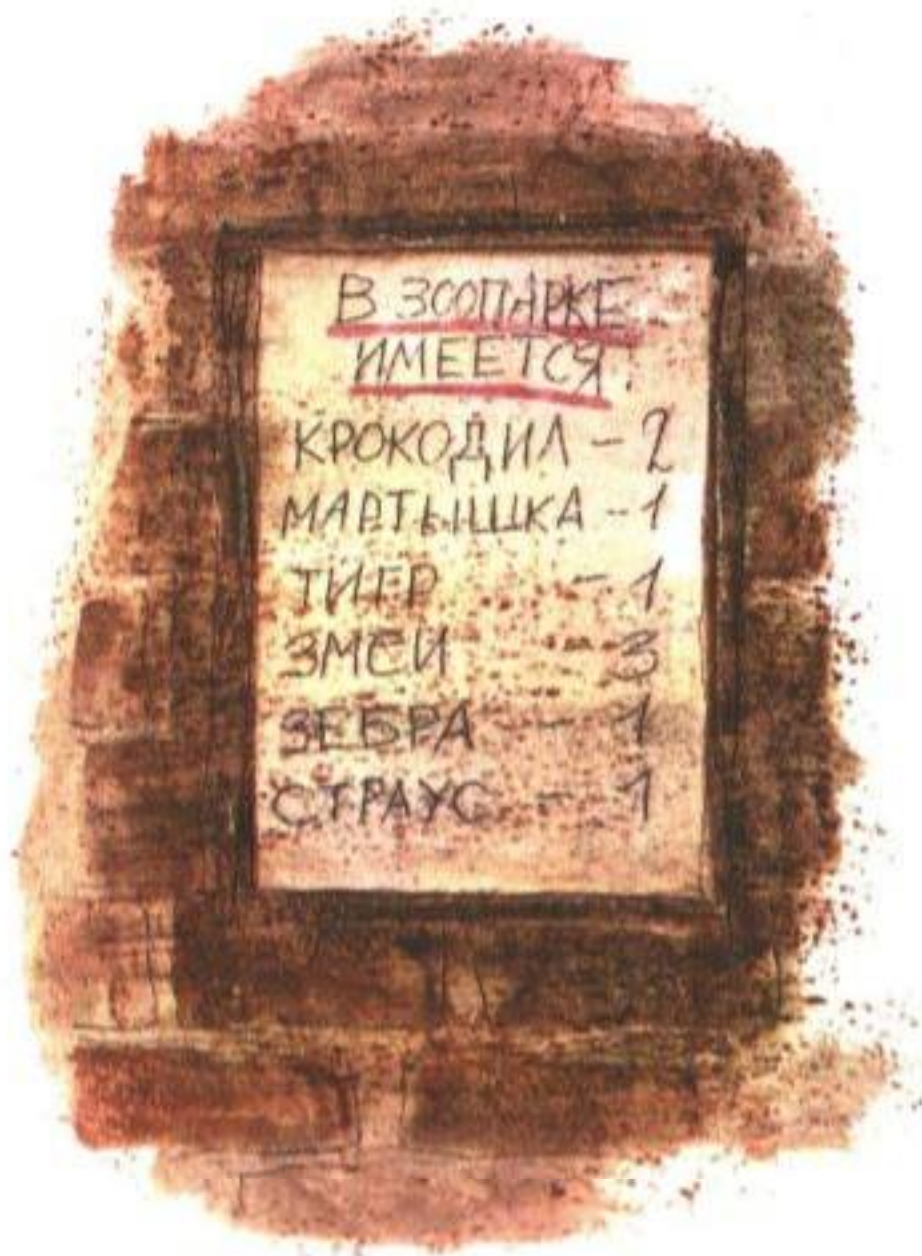 В ЗООПАРКЕ
ИМЕЕТСЯ:
КРОКОДИЛ - 2
МАРТЫШКА - 1
ТИГР - 1
ЗМЕИ 3
ЗЕБРА - 1
СТРАУС - 1